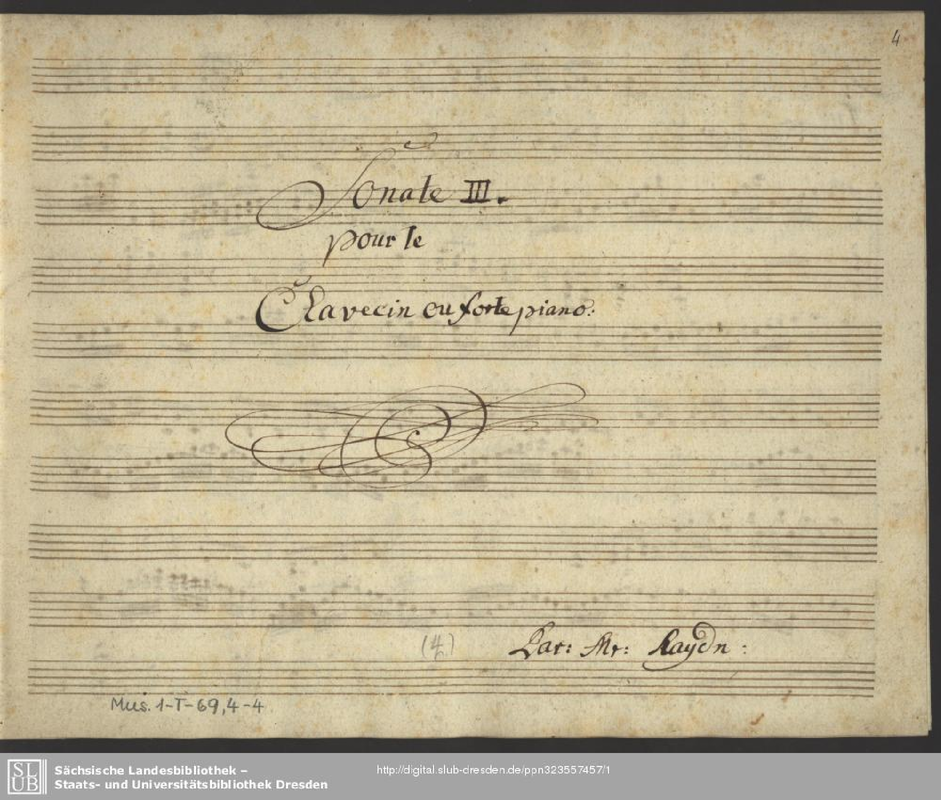 4
Sonate III.
pour le
Clavecin ou forte piano:
(4)
Par: Mr: Haydn:
Mus. 1-T-69,4-4
SLUB
Sächsische Landesbibliothek –
Staats- und Universitätsbibliothek Dresden
http://digital.slub-dresden.de/ppn323557457/1